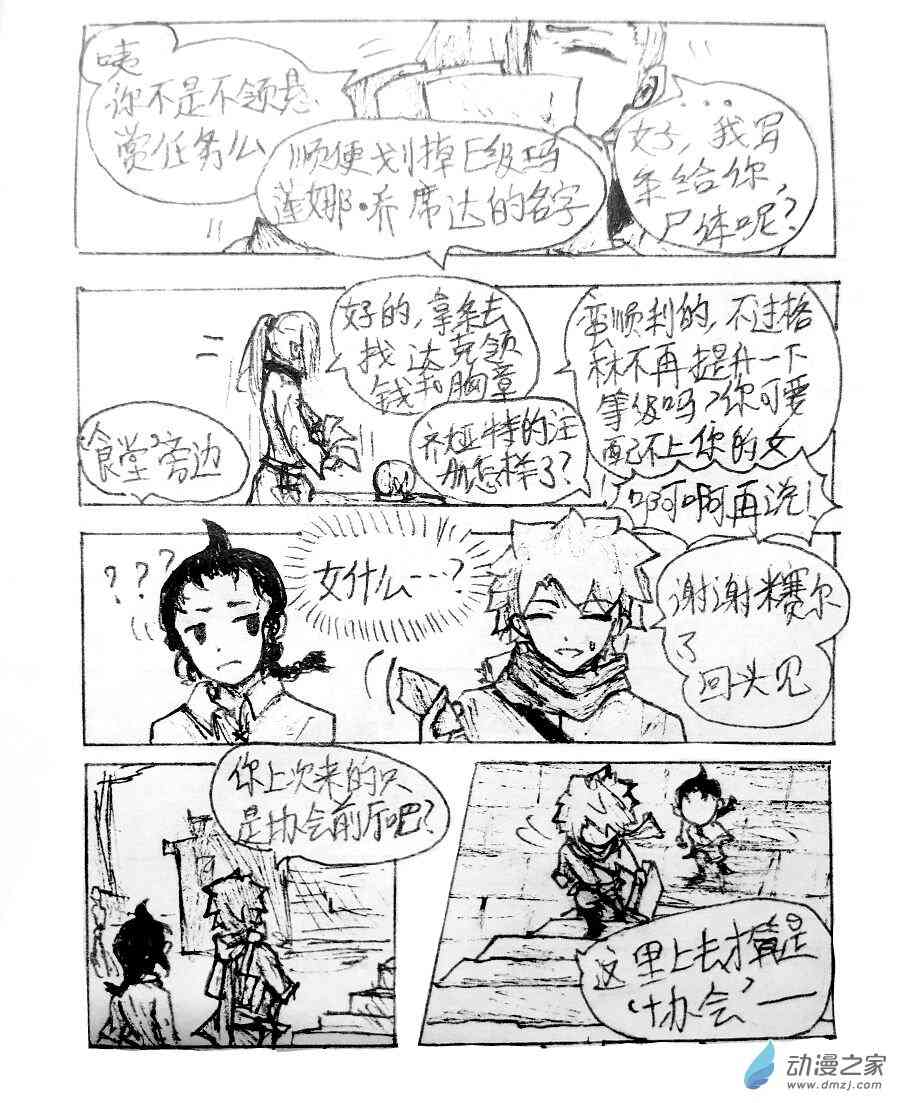 咦
你不是不领悬
赏任务么
顺便划掉E级玛
莲娜·乔席达的名字
…
好了,我写
条给你,
尸体呢?
好的,拿条去
找达克领
钱和胸章
齐娅特的注
册怎样了?
蛮顺利的,不过格
林不再提升一下
等级吗?你可要
配不上你的女
食堂旁边
啊啊啊再说!
???
女什么……?
谢谢米赛尔
了
回头见
你上次来的只
是协会前厅吧?
这里上去才算是
‘协会’——
动漫之家
www.dmzj.com